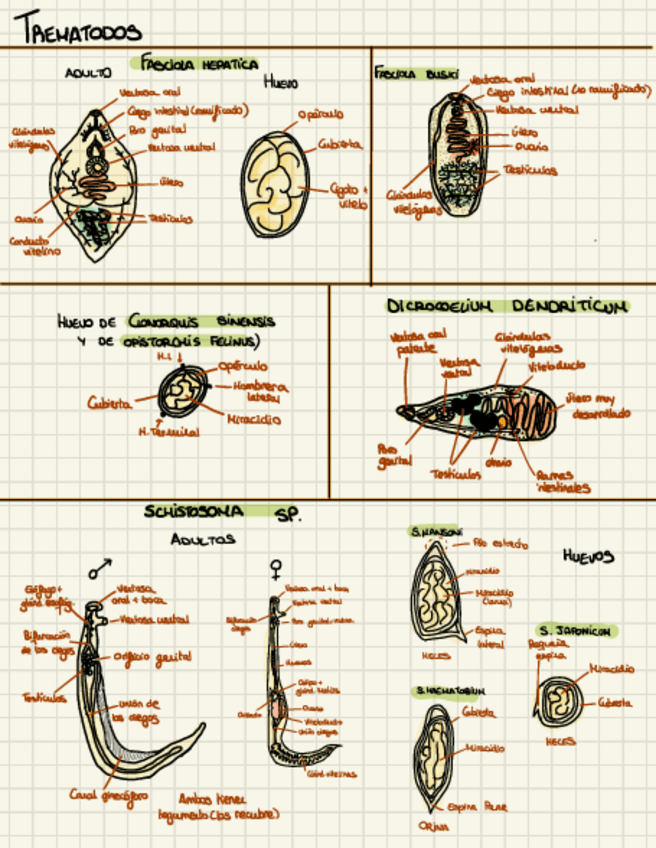 TREMATODOS
FASCIOLA HEPATICA
ADULTO
HUEVO
Ventosa oral
Ciego intestinal (ramificado)
Poro genital
Ventosa ventral
Útero
Testículos
Glándulas
vitelógenas
Ovario
Conducto
vitelino
Opérculo
Cubierta
Cigoto +
vitelo
FASCIOLA BUSKI
Ventosa oral
Ciego intestinal (no ramificado)
Ventosa ventral
Útero
Ovario
Testículos
Glándulas
vitelógenas
HUEVO DE CLONORQUIS SINENSIS
Y DE OPISTORCHIS FELINUS)
H.L
Opérculo
Hombrera
lateral
Miracidio
Cubierta
H. Terminal
DICROCOELIUM DENDRITICUM
Ventosa oral
Ventosa
ventral
Glándulas
vitelógenas
Viteloducto
Útero muy
desarrollado
Poro
genital
Testículos
Ovario
Ramas
intestinales
SCHISTOSOMA SP.
ADULTOS
♂
♀
Esófago +
Ventosa
oral + boca
Ventosa ventral
Bifurcación
de los ciegos
Orificio genital
Testículos
Unión de
los ciegos
Canal ginecóforo
Ambos tienen
tegumento (los recubre)
Ventosa oral + boca
Ventosa ventral
Bifurcación
ciegos
Útero
Huevos
Ovario
Viteloducto
Unión ciegos
HUEVOS
S. MANSONI
Polo estrecho
Miracidio
Miracidio
(larva)
Espina
lateral
HECES
S. JAPONICUM
Pequeña
espina
Miracidio
Cubierta
HECES
S. HAEMATOBIUM
Cubierta
Miracidio
Espina Polar
ORINA